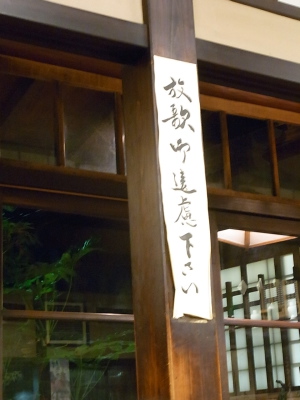 放歌御遠慮下さい